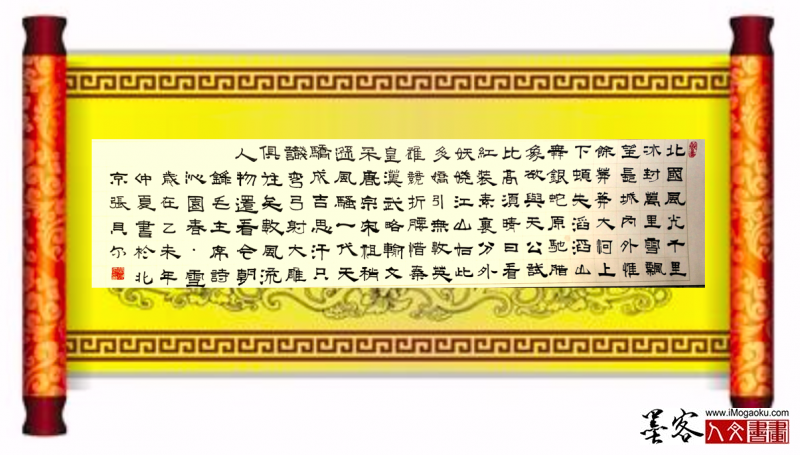 北國風光千里
冰封萬里雪飄
望長城內外惟
餘莽莽大河上
下頓失滔滔山
舞銀蛇原馳腊
象欲與天公試
比高須晴日看
紅裝素裹分外
妖嬈江山如此
多嬌引無數英
雄競折腰惜秦
皇漢武略輸文
采唐宗宋祖稍
遜風騷一代天
驕成吉思汗只
識彎弓射大雕
俱往矣數風流
人物還看今朝
錄毛主席詩
沁園春·雪
歲在乙未年
仲夏書於北
京張月
墨客
www.iMogaoku.com
人文書畫